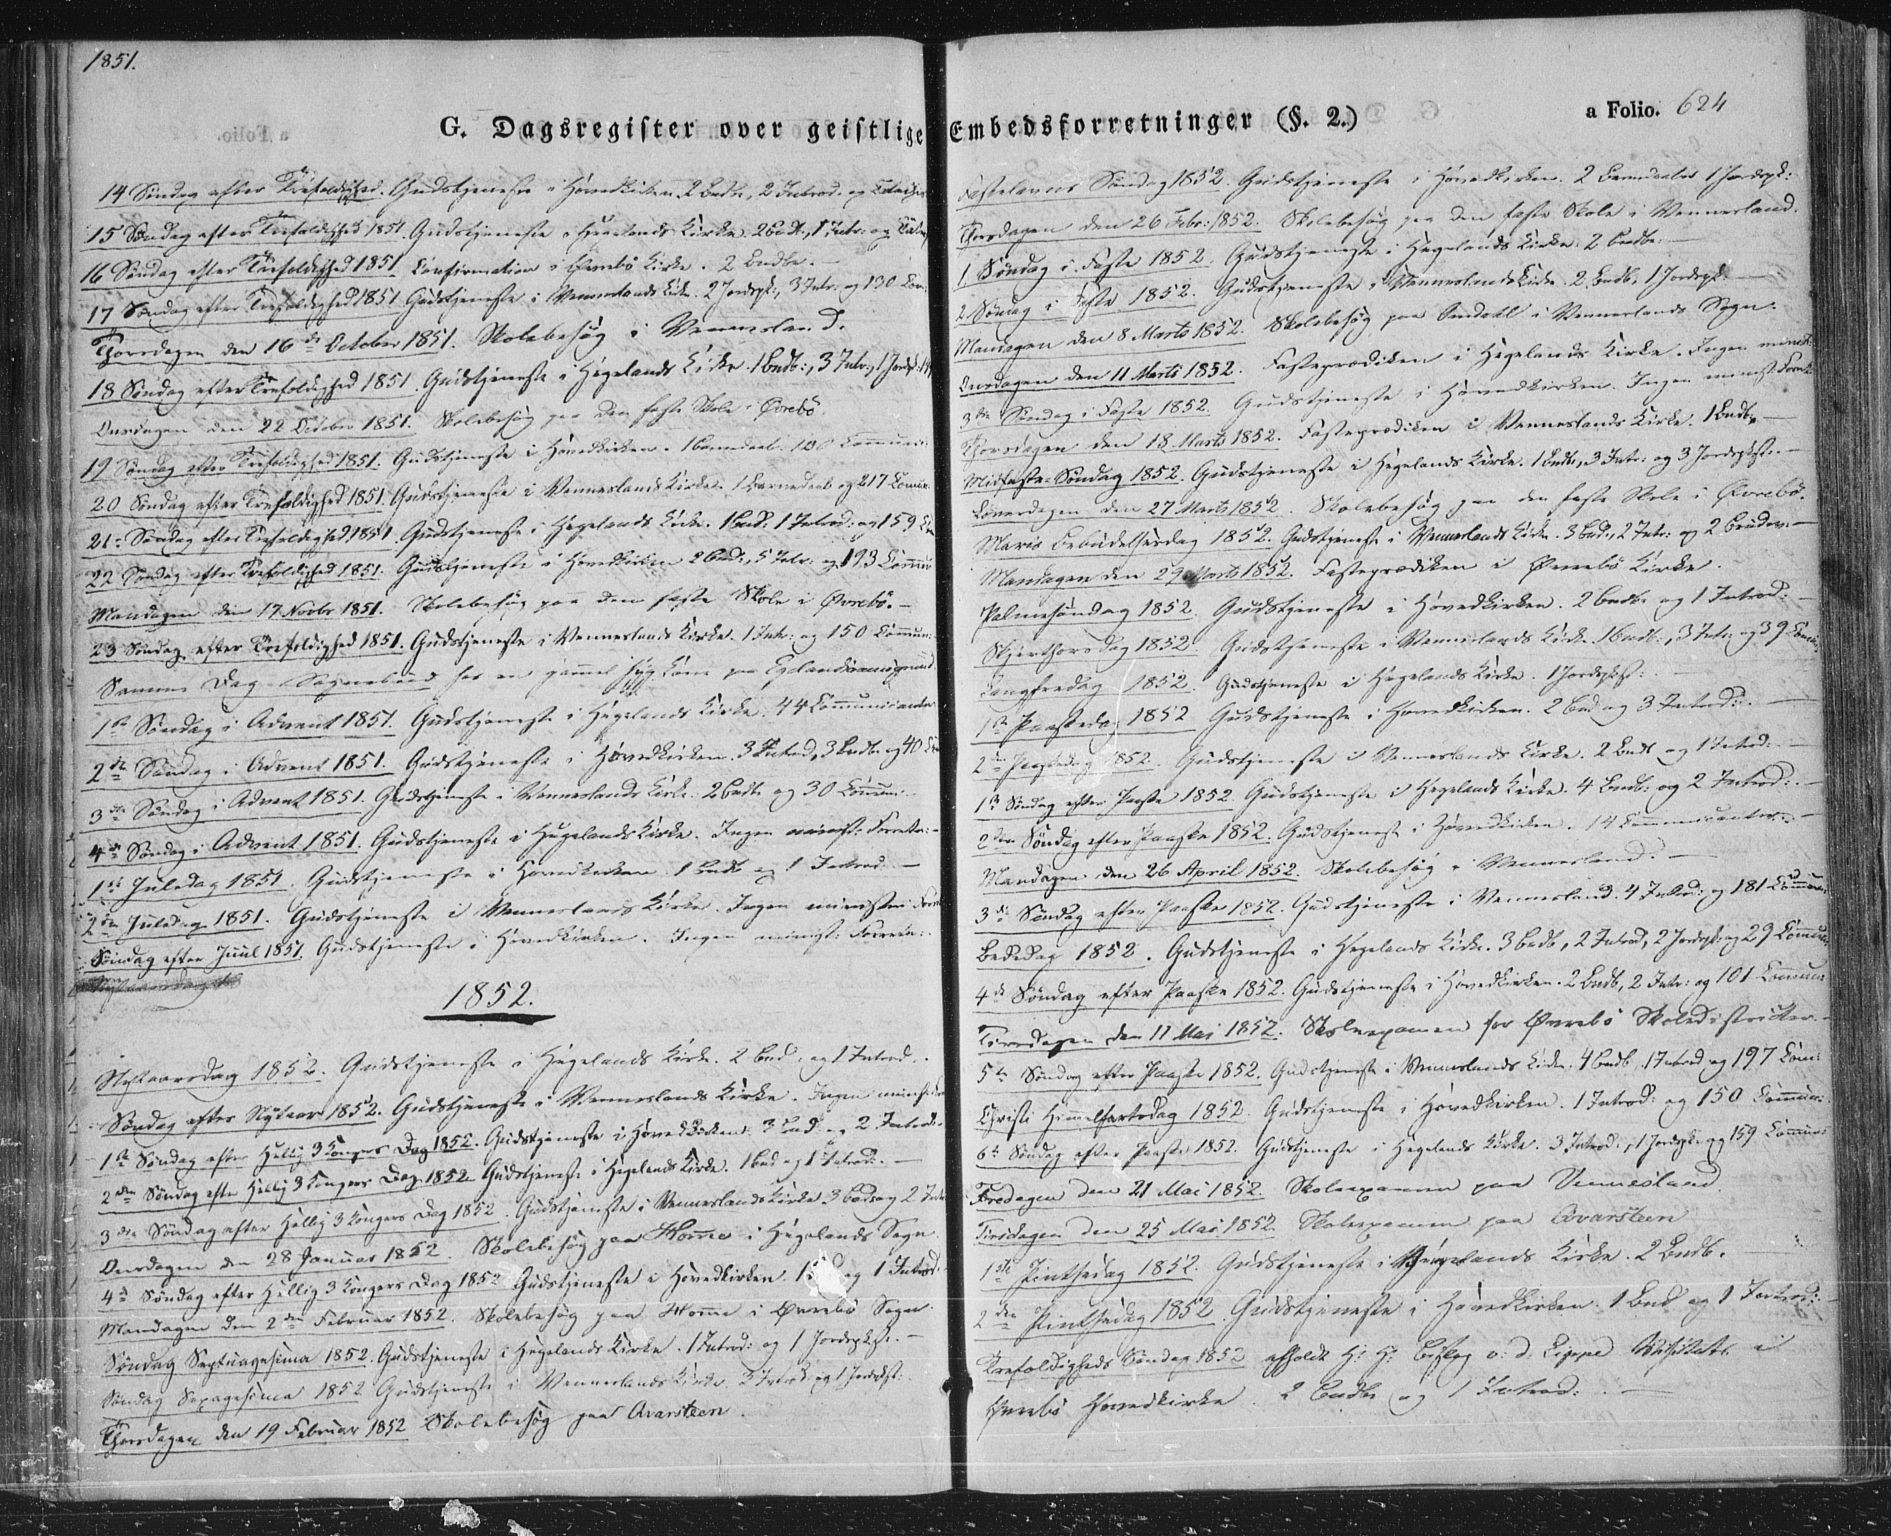 1851.
G. Dagsregister over geistlige Embedsforretninger (§. 2.)
a Folio. 624
14 Søndag efter Trefoldighed. Gudstjeneste i Hovedkirken. 2 Barned., 2 Introd. og
15 Søndag efter Trefoldighed 1851. Gudstjeneste i Hegelands Kirke. 2 Barnd., 1 Intr: og
16 Søndag efter Trefoldighed 1851. Confirmation i Øvrebö Kirke. 2 Barndb. –
17 Søndag efter Trefoldighed 1851. Gudstjeneste i Vennerslands Kirke. 2 Jordspk:, 3 Intr. og 130 Com:
Thorsdagen den 16de October 1851. Skolebesøg i Vennersland.
18 Søndag efter Trefoldighed 1851. Gudstjeneste i Hegelands Kirke. 1 Barndb:, 3 Intr., 1 Jordspk:
Onsdagen den 22 October 1851. Skolebesøg paa den faste Skole i Øvrebö.
19 Søndag efter Trefoldighed 1851. Gudstjeneste i Hovedkirken. 1 Barnedaab. Communi:
20 Søndag efter Trefoldighed 1851. Gudstjeneste i Vennerslands Kirke. 1 Barnedaab og 217 Commun:
21: Søndag efter Trefoldighed 1851. Gudstjeneste i Hegelands Kirke. 1 Barnd. 1 Introd: og 159
22 Søndag efter Trefoldighed 1851. Gudstjeneste i Hovedkirken 2 Barnd:, 5 Intr. og 193 Commun
Mandagen den 17. Novbr 1851. Skolebesøg paa den faste Skole i Øvrebö. –
23 Søndag efter Trefoldighed 1851. Gudstjeneste i Vennerslands Kirke. 1 Intr: og 150 Commun:
Samme Dag hos en gammel syg Kone paa
1ste Søndag i Advent 1851. Gudstjeneste i Hegelands Kirke. 44 Communicanter
2den Søndag i Advent 1851. Gudstjeneste i Hovedkirken. 3 Introd, 3 Barndb. og 40
3die Søndag i Advent 1851. Gudstjeneste i Vennerslands Kirke. 2 Barndb. og 30 Commun:
4de Søndag i Advent 1851. Gudstjeneste i Hegelands Kirke. Ingen minist: Forretn: –
1ste Juledag 1851. Gudstjeneste i Hovedkirken. 1 Barndb og 1 Introd. –
2den Juledag 1851. Gudstjeneste i Vennerslands Kirke. Ingen ministr: Forret
Søndag efter Juul 1851. Gudstjeneste i Hovedkirken. Ingen minist: Forretn:.
1852.
Nytaarsdag 1852. Gudstjeneste i Hegelands Kirke. 2 Barnd. og 1 Introd.
Søndag efter Nytaar 1852. Gudstjeneste i Vennerslands Kirke. Ingen
1ste Søndag efter Hellig 3 Kongers Dag 1852. Gudstjeneste i Hovedkirken. 3 Barnd. og 2 Introd.
2den Søndag efter Hellig 3 Kongers Dag 1852. Gudstjeneste i Hegelands Kirke. 1 Barnd og 1 Introd:. –
3die Søndag efter Hellig 3 Kongers Dag 1852. Gudstjeneste i Vennerslands Kirke. 3 Barnd og 2
Onsdagen den 28 Januar 1852. Skolebesøg paa Homme i Hegelands Sogn.
4de Søndag efter Hellig 3 Kongers Dag 1852 Gudstjeneste i Hovedkirken. 1 og 1 Introd.
Mandagen den 2den Februar 1852. Skolebesøg paa Homme i Øvrebö Sogn.
Søndag Septuagesima 1852. Gudstjeneste i Hegelands Kirke. 1 Introd: og 1 Jordspkst. –
Søndag Sexagesima 1852 Gudstjeneste i Vennerslands Kirke. 3 Introd. og 1 Jordspkst:.
Thorsdagen den 19 Februar 1852 Skolebesøg paa Qvarsteen.
Fastelavns Søndag 1852. Gudstjeneste i Hovedkirken. 2 Barnedaab 1 Jordspk:
Thorsdagen den 26 Febr: 1852. Skolebesøg paa den faste Skole i Vennersland.
1 Søndag i Faste 1852. Gudstjeneste i Hegelands Kirke. 2 Barndb: –
2 Søndag i Faste 1852. Gudstjeneste i Vennerslands Kirke. 2 Barndb, 1 Jordspk. –
Mandagen den 8 Marts 1852. Skolebesøg paa i Vennerslands Sogn.
Onsdagen den 11 Marts 1852. Fasteprædiken i Hegelands Kirke. Ingen minist:
3die Søndag i Faste 1852. Gudstjeneste i Hovedkirken. Ingen minist: Forretn
Thorsdagen den 18 Marts 1852. Fasteprædiken i Vennerslands Kirke. 1 Barndb. –
Midfaste-Søndag 1852. Gudstjeneste i Hegelands Kirke. 1 Barndb:, 3 Intr: og 3 Jordspkst. –
Løverdagen den 27 Marts 1852. Skolebesøg paa den faste Skole i Øvrebö.
Mariæ Bebudelsesdag 1852. Gudstjeneste i Vennerslands Kirke. 3 Barnd:, 2 Intr: og 2 Brudev: –
Mandagen den 29 Marts 1852. Fasteprædiken i Øvrebö Kirke.
Palmesøndag 1852. Gudstjeneste i Hovedkirken. 2 Barndb og 1 Introd: –
Skjærthorsdag 1852. Gudstjeneste i Vennerslands Kirke. 1 Barndb:, 3 Intr. og 39 Commun:
Langfredag 1852. Gudstjeneste i Hegelands Kirke. 1 Jordspkst: –
1ste Paaskedag 1852 Gudstjeneste i Hovedkirken. 2 Barnd og 3 Introd:. –
2den Paaskedag 1852. Gudstjeneste i Vennerslands Kirke. 2 Barndb og 1 Introd: –
1ste Søndag efter Paaske 1852. Gudstjeneste i Hegelands Kirke. 4 Barndb: og 2 Introd:. –
2den Søndag efter Paaske 1852. Gudstjeneste i Hovedkirken. 14 Communicanter: –
Mandagen den 26 April 1852. Skolebesøg i Vennersland. –
3die Søndag efter Paaske 1852. Gudstjeneste i Vennersland. 4 Introd: og 181 Commun:
Bededag 1852. Gudstjeneste i Hegelands Kirke. 3 Barndb, 2 Introd, 2 Jordspk: og 29 Commun
4de Søndag efter Paaske 1852. Gudstjeneste i Hovedkirken. 2 Barndb, 2 Intr: og 101 Commun:
Tirsdagen den 11 Mai 1852. Skoleexamen for Øvrebö Skoledistricter. –
5te Søndag efter Paaske 1852. Gudstjeneste i Vennerslands Kirke. 4 Barndb. 1 Introd og 197 Com:
Christi Himmelfartsdag 1852. Gudstjeneste i Hovedkirken. 1 Introd: og 150 Commun:
6te Søndag efter Paaske 1852. Gudstjeneste i Hegelands Kirke. 3 Introd:, 1 Jordspk: og 159 Commun:
Fredagen den 21 Mai 1852. Skoleexamen paa Vennesland.
Tirsdagen den 25 Mai 1852. Skoleexamen paa Qvarsteen
1ste Pintsedag 1852. Gudstjeneste i Hegelands Kirke. 2 Barndb.
2den Pintsedag 1852. Gudstjeneste i Hovedkirken 1 Barnd og 1 Introd:
Trefoldigheds Søndag 1852 afholdt H: H: Biskop v. d. Lippe Visitats i
Øvrebö Hovedkirke. 2 Barndb og 1 Introd:. –